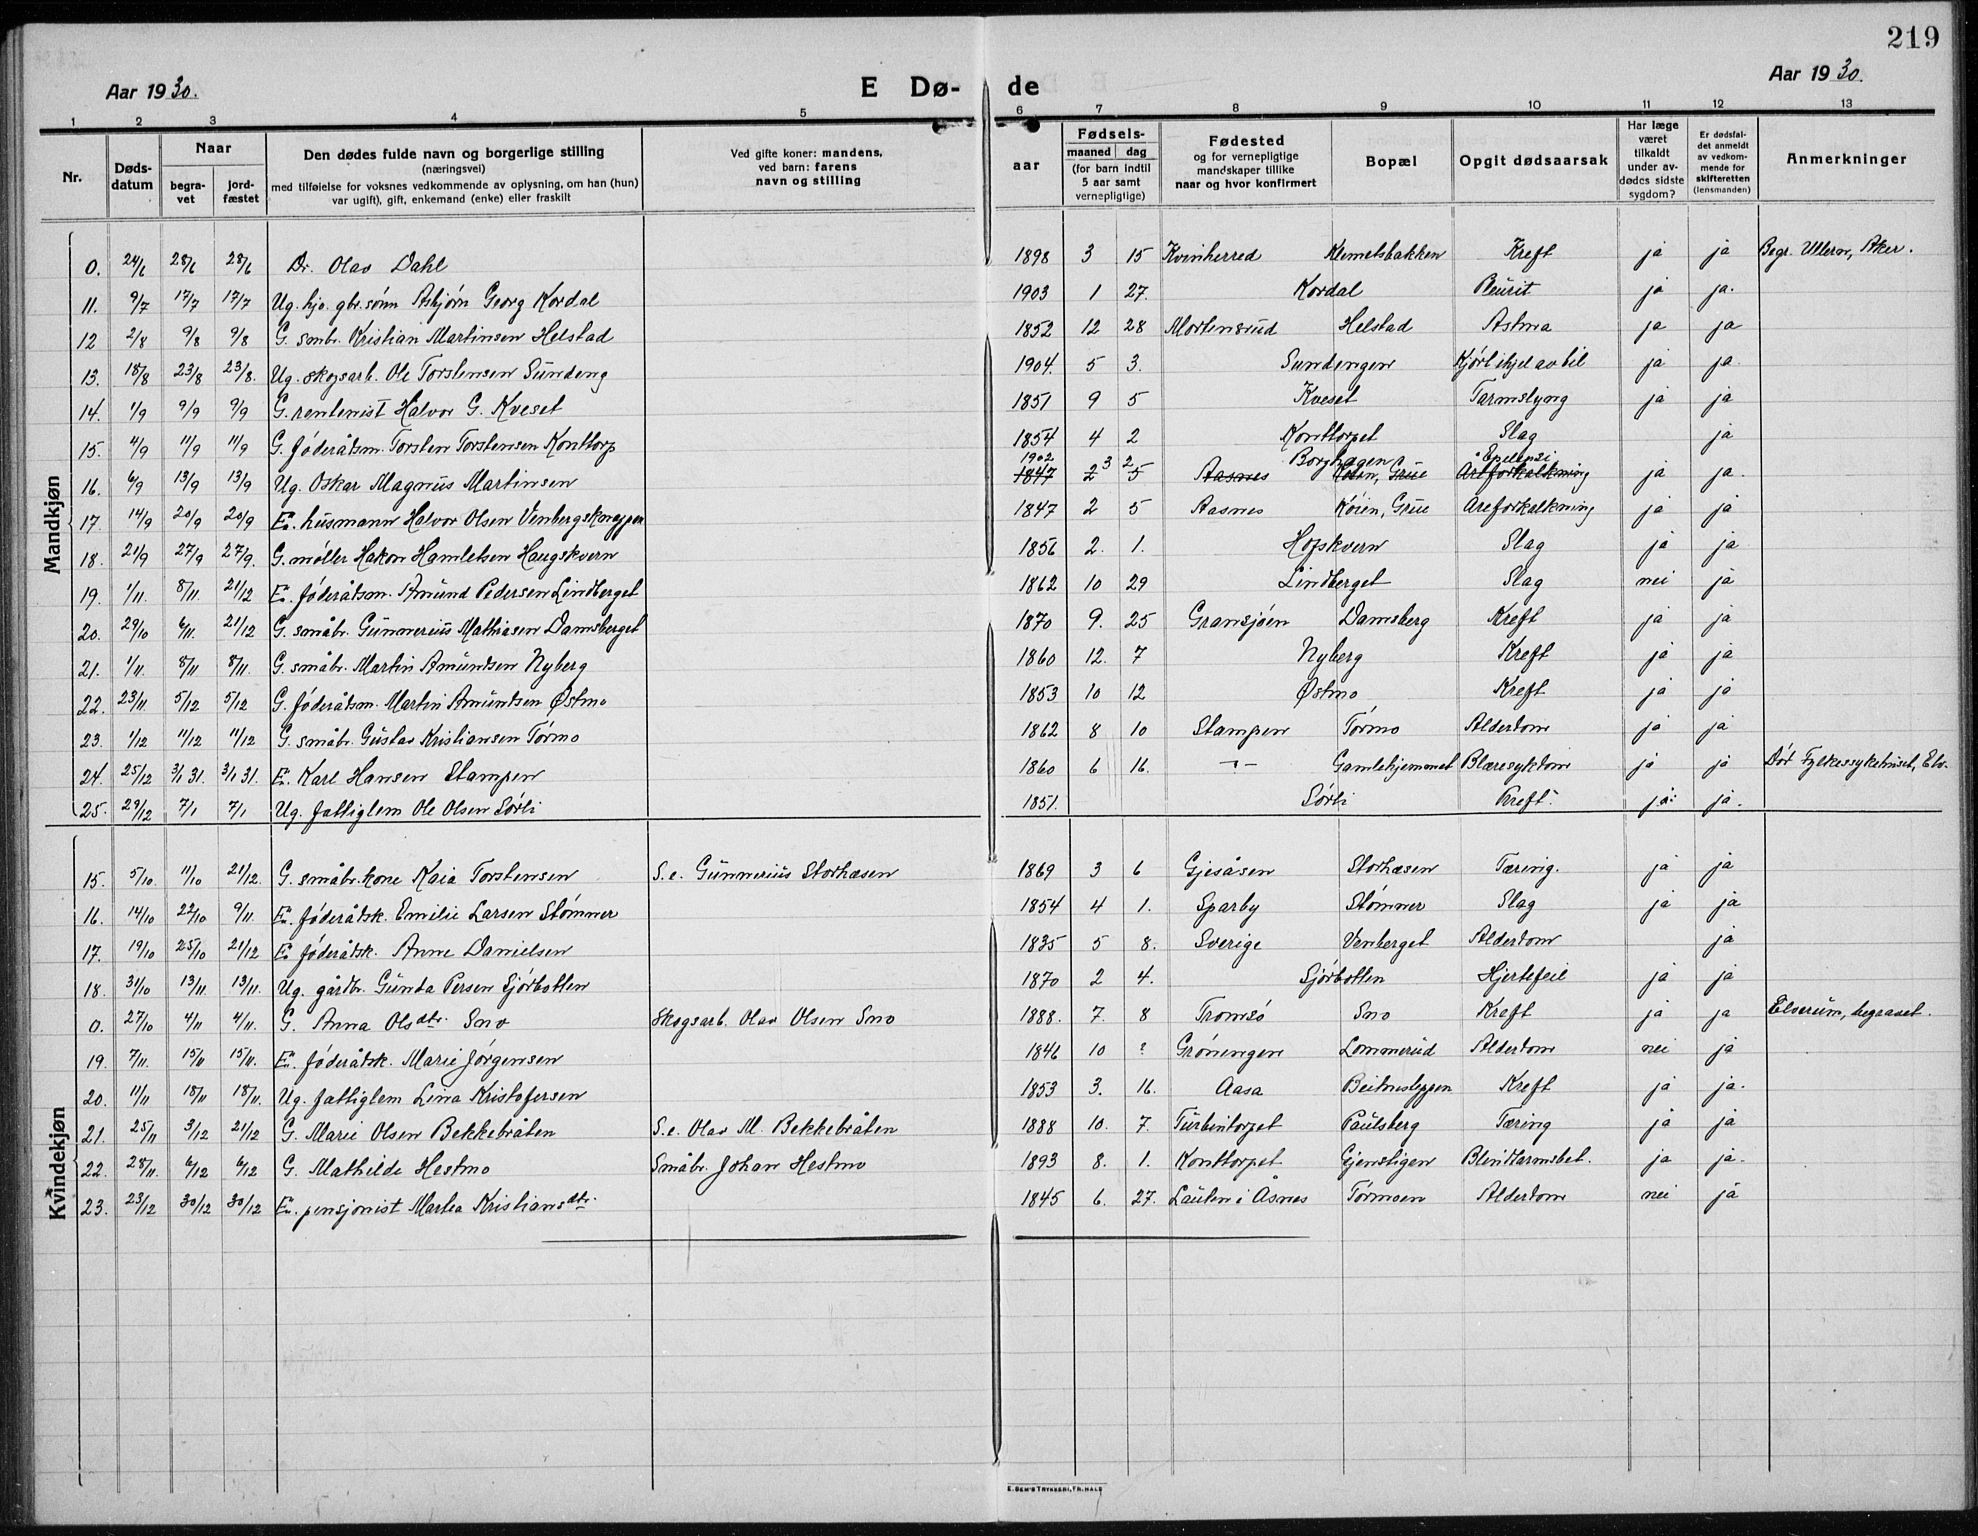 219
Aar 1930. E Dø- de Aar 1930.
1 2 3 4 5 6 7 8 9 10 11 12 13
Nr. Døds-datum Naar begra-vet jord-fæstet Den dødes fulde navn og borgerlige stilling (næringsvei) med tilføielse for voksnes vedkommende av oplysning, om han (hun) var ugift), gift, enkemand (enke) eller fraskilt Ved gifte koner: mandens, ved barn: farens navn og stilling aar Fødsels- maaned dag (for barn indtil 5 aar samt vernepligtige) Fødested og for vernepligtige mandskaper tillike naar og hvor konfirmert Bopæl Opgit dødsaarsak Har læge været tilkaldt under av-dødes sidste sygdom? Er dødsfal-det anmeldt av vedkom-mende for skifteretten (lensmanden) Anmerkninger
Mandkjøn
0. 24/6 28/6 28/6 Dr. Olav Dahl 1898 3 15 Kvinherred Klemetsbakken Kreft ja ja Begr. Ullern, Aker.
11. 9/7 17/7 17/7 Ug. hjv. gbr.sønn Asbjørn Georg Kordal 1903 1 27. Kordal Pleurit ja ja.
12 2/8 9/8 9/8 G. smbr. Kristian Martinsen Helstad 1852 12 28 Mortensrud Helstad Astma ja ja
13. 18/8 23/8 23/8. Ug. skogsarb. Ole Torstensen Sundeng 1904. 5 3. Sundengen Kjørt ihjel av bil ja ja.
14. 1/9 9/9 9/9 G. rentenist Halvor G. Kveset 1851 9 5 Kveset Tarmslyng ja ja
15. 4/9 11/9 11/9 G. føderåtsm. Torsten Torstensen Konttorp 1854 4 2 Konttorpet Slag ja
16. 6/9 13/9 13/9 Ug. Oskar Magnus Martinsen 1902 1847 3 2 2 5 Aasnes Borghagen Køien, Grue Epilepsi Areforkalkning ja ja.
17. 14/9 20/9 20/9 Em. husmann Halvor Olsen Venbergsknappen 1847 2 5 Aasnes Køien, Grue Areforkalkning ja ja
18. 21/9 27/9 27/9. G. møller Hakon Hamletsen Haugskvern 1856 2. 1. Hofskvern Slag ja ja
19. 1/11. 8/11. 21/12 Em. føderåtsm. Amund Pedersen Lindberget 1862 10 29 Lindberget Slag nei ja
20. 29/10 6/11. 21/12 G. småbr. Gunnerius Mathiasen Damsberget 1870 9. 25 Gransjøen Damsberg Kreft ja ja
21. 1/11. 8/11 8/11. G. småbr. Martin Amundsen Nyberg 1860 12. 7 Nyberg Kreft ja ja
22. 23/11 5/12 5/12 G. føderåtsm. Martin Amundsen Østmo 1853 10 12 Østmo Kreft ja ja
23. 1/12 11/12 11/12 G. småbr. Gustav Kristiansen Tørmo 1862 8 10 Stampen Tørmo Alderdom ja ja
24. 25/12 3/1 31. 3/1 31. Em. Karl Hansen Stampen 1860 6 16. -"- Gamlehjemmet Blæresykdom ja ja Død Fylkessykehuset, Elv.
25. 29/12 7/1 7/1 Ug. fattiglem Ole Olsen Sørli 1851. Sørli Kreft. ja. ja.
Kvindekjøn
15. 5/10. 11/10 21/12. G. småbr.kone Kaia Torstensen S.e. Gunnerius Storhæsen 1869 3 6 Gjesåsen Storhæsen Tæring. ja ja
16. 14/10 22/10 9/11. En. føderådsk. Emilie Larsen Stømner 1854 4 1. Sparby Stømner Slag ja ja
17. 19/10 25/10 21/12 En føderådsk. Anne Danielsen 1835 5 8. Sverige Venberget Alderdom ja
18. 31/10 13/11. 13/11. Ug. gårdbr. Gunda Persen Sjørbotten 1870 2 4. Sjørbotten Hjertefeil ja ja
0. 27/10 4/11 4/11. G. Anna Olsdtr. Sno Skogsarb. Olav Olsen Sno 1888. 7. 8 Tromsø Sno Kreft ja ja Elverum, begravet.
19. 7/11. 15/11 15/11. En. føderådsk. Marie Jørgensen 1846 10 ? Grøningen Lommerud Alderdom nei ja
20. 11/11 18/11 18/11. Ug. fattiglem Lina Kristofersen 1853 3. 16. Aasa Kreft ja ja.
21. 25/11 3/12 21/12 G. Marie Olsen Bekkebråten S.e. Olav M. Bekkebråten 1888 10. 7. Turbintorpet Paulsberg Tæring ja ja
22. 28/11. 6/12 6/12 G. Mathilde Hestmo Småbr. Johan Hestmo 1893 8. 1. Konttorpet Gjenstigen Blindtarmsbet. ja ja.
23. 23/12 30/12 30/12 En. pensjonist Martea Kristiansdtr. 1845 6. 27. Lauten i Åsnes Tørmoen Alderdom nei ja
E. SEM'S TRYKKERI, FR.HALD